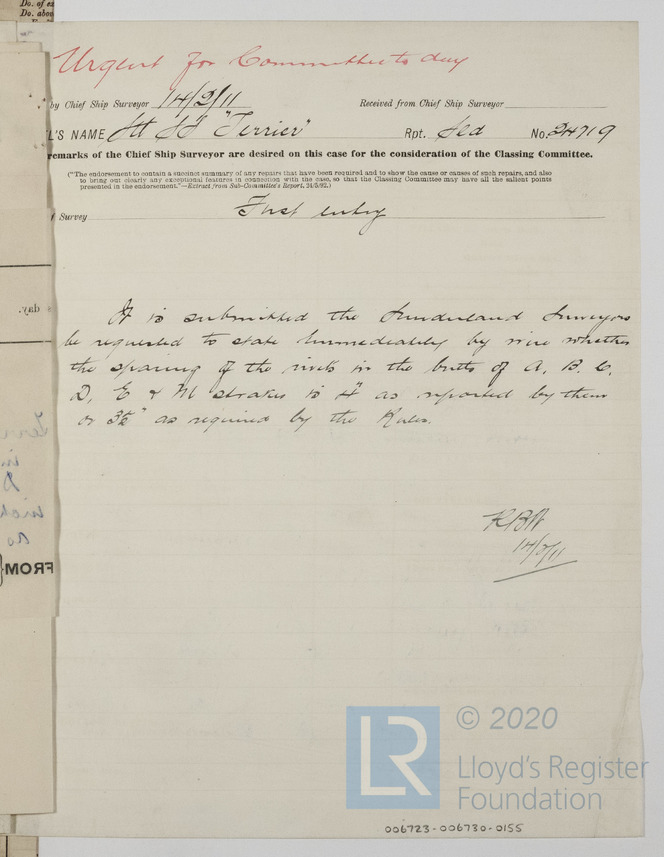 Do. of ex
Do. abou
Urgent for Committee to day
by Chief Ship Surveyor 14/2/11 Received from Chief Ship Surveyor
L'S NAME "Terrier" Rpt. Sld No. 24719
remarks of the Chief Ship Surveyor are desired on this case for the consideration of the Classing Committee.
("The endorsement to contain a succinct summary of any repairs that have been required and to show the cause or causes of such repairs, and also
to bring out clearly any exceptional features in connection with the case, so that the Classing Committee may have all the salient points
presented in the endorsement."—Extract from Sub-Committee's Report, 24/5/92.)
Survey First entry
It is submitted the Sunderland Surveyors
be requested to state immediately by wire whether
the spacing of the rivets in the butts of A, B, C,
D, E & M strakes is 4" as reported by them
or 3½" as required by the Rules.
14/2/11
day.
FROM
LR
© 2020
Lloyd's Register
Foundation
006723-006730-0155